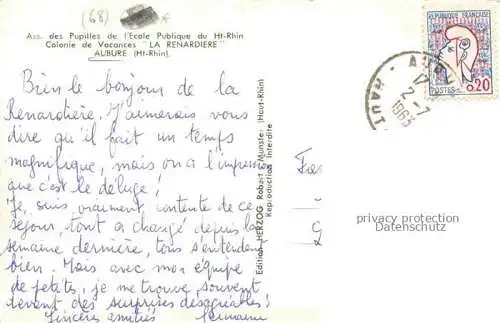 (68)
Ass. des Pupilles de l'Ecole Publique du Ht-Rhin
Colonie de Vacances "LA RENARDIERE"
AUBURE (Ht-Rhin)
Bien le bonjour de la
Renardière. J'aimerais vous
dire qu'il fait un temps
magnifique, mais on a l'impression
que c'est le déluge!
Je suis vraiment contente de ce
séjour, tout a changé depuis la
semaine dernière, tous s'entendent
bien. Mais avec mon équipe
de petits, je me trouve souvent
devant des surprises désagréables!
Sincères amitiés
Edition HERZOG Robert - Munster (Haut-Rhin)
Reproduction Interdite
POSTES
0.20
2-7
1963
privacy protection
Datenschutz